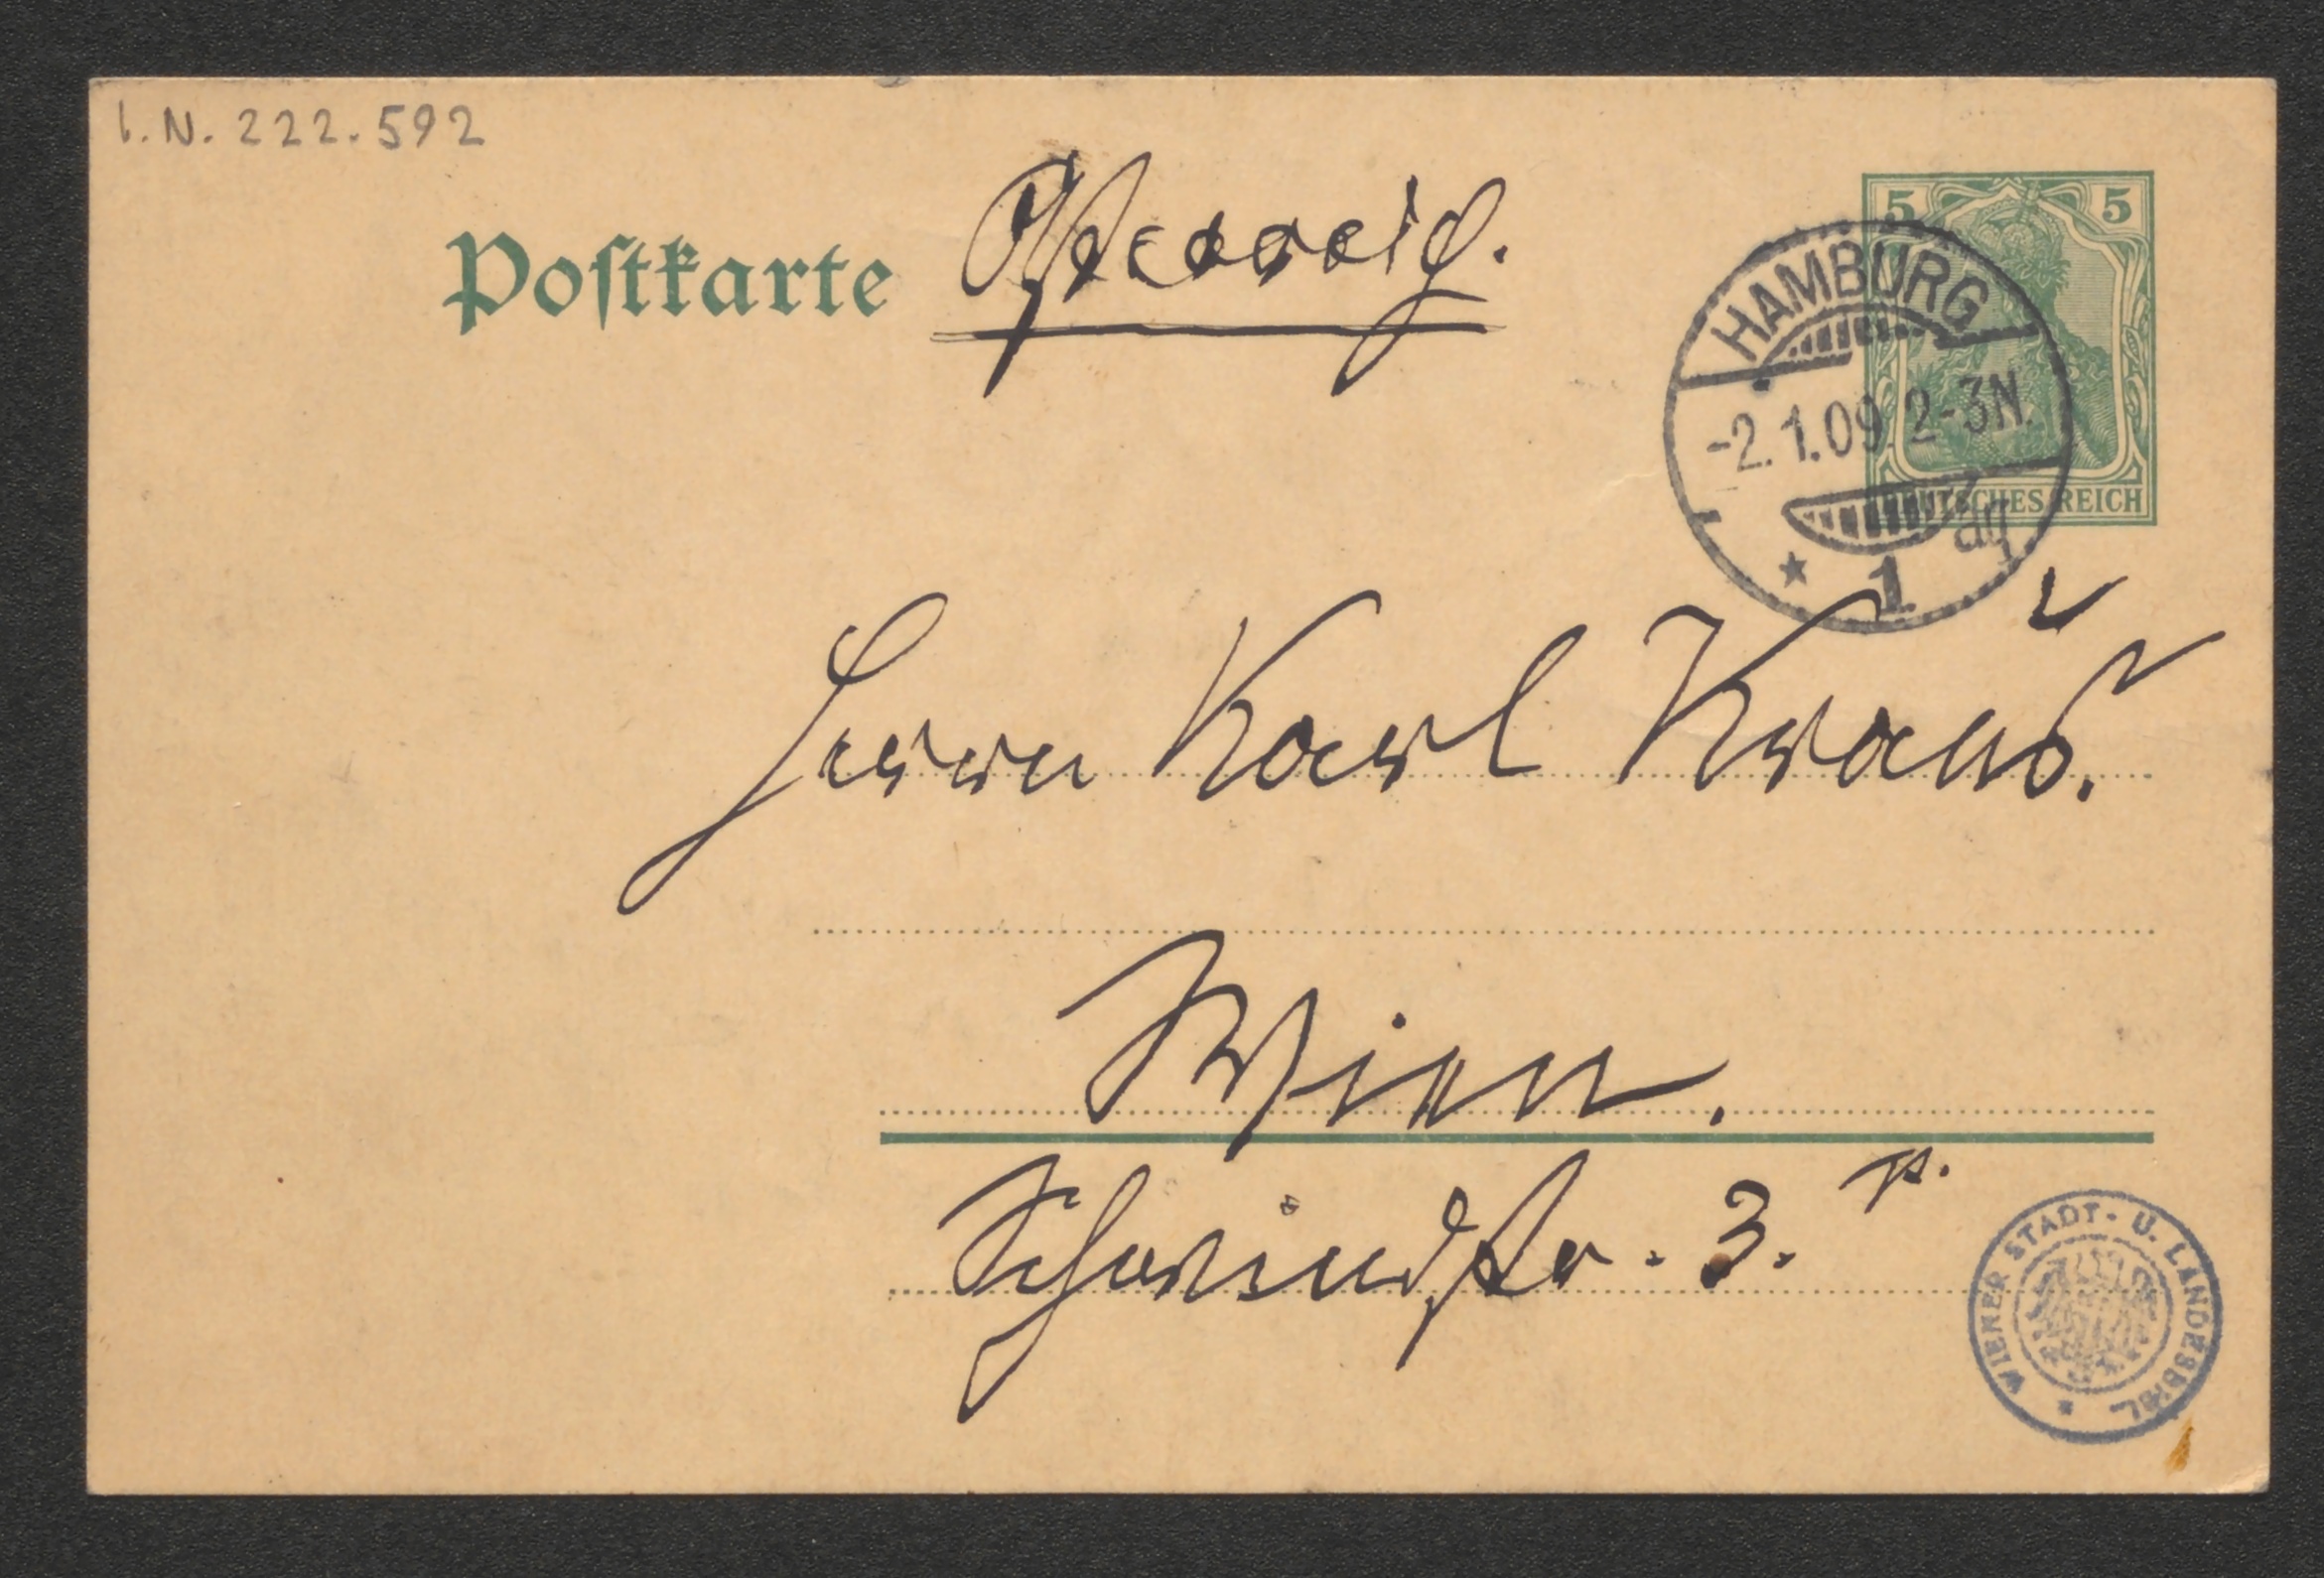 I.N. 222.592
Postkarte Österreich.
5 5
DEUTSCHES REICH
HAMBURG
-2.1.09 2-3N.
* 1
Herrn Karl Kraus.
Wien.
Schwindstr. 3.
WIENER STADT- U. LANDESBIBL. *